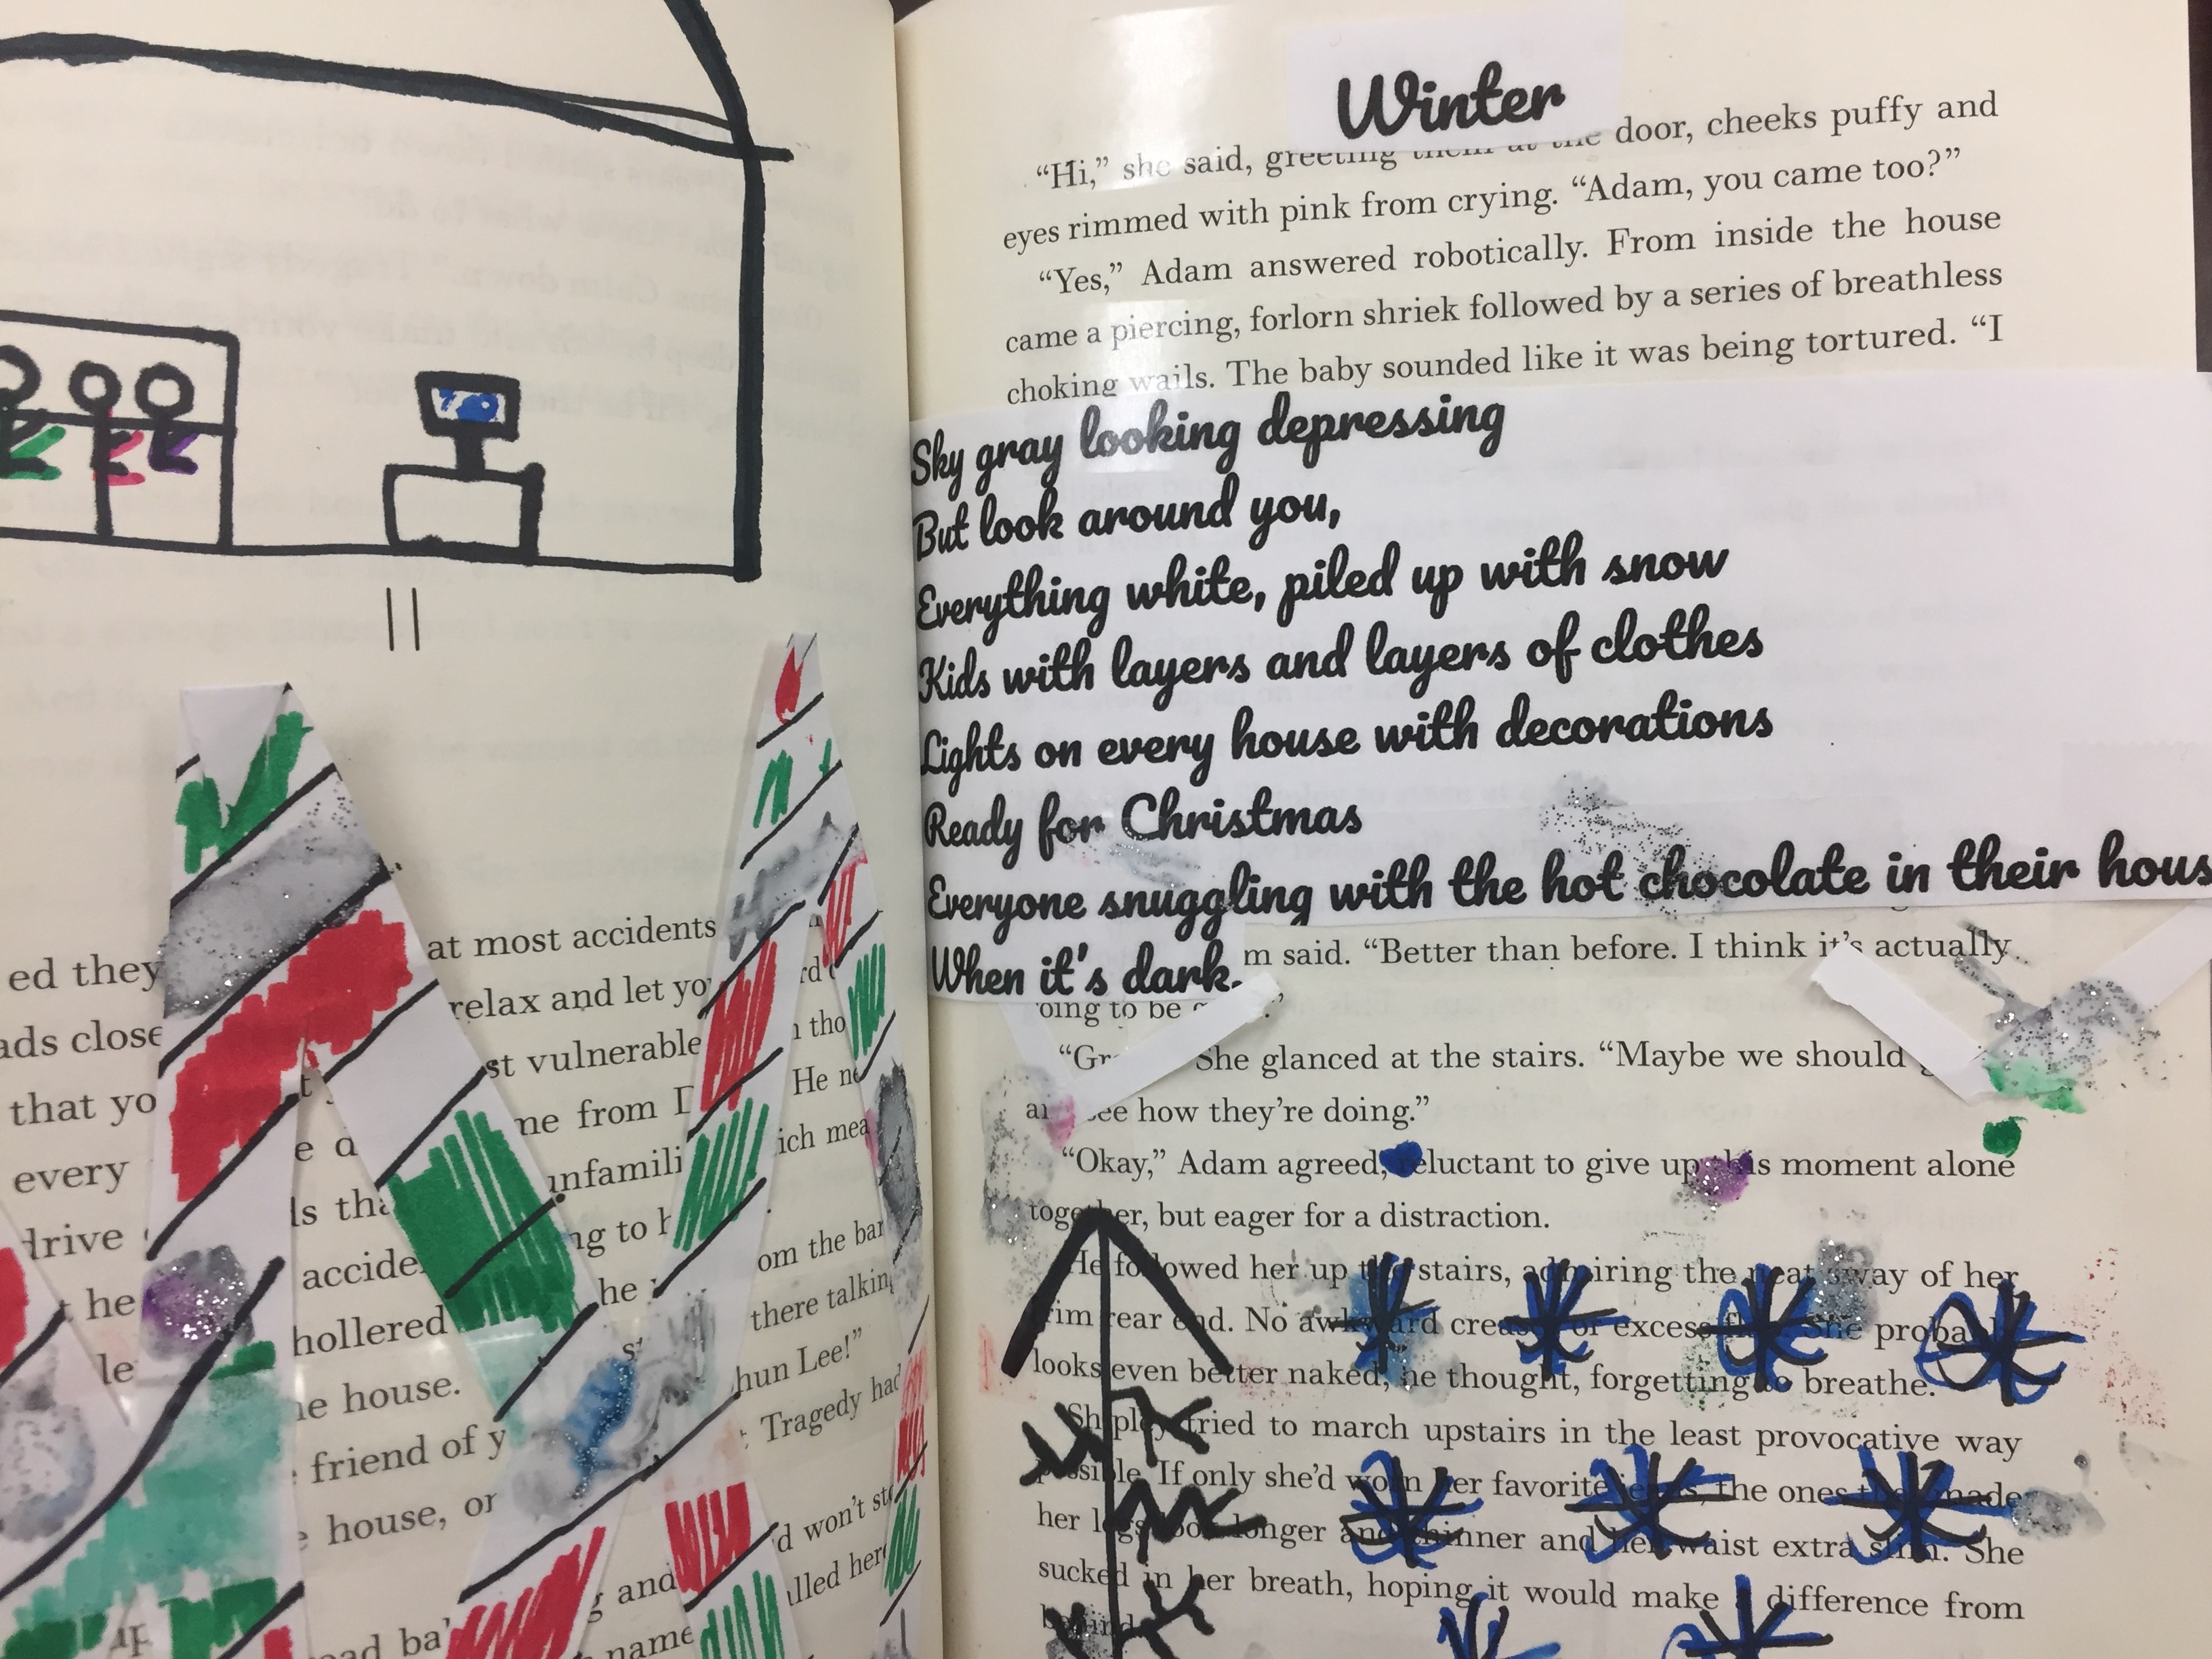 ed they
at most accidents
ads close
relax and let yo
that yo
st vulnerable
n tho
every
me from D
He ne
drive
ls tha
unfamili
ich mea
accide
ng to h
t he
he
om the bar
le
hollered
there talkin
he house.
hun Lee!"
friend of y
Tragedy had
house, or
d won't sto
g and
alled here
name
Winter
“Hi,” she said, greeting them at the door, cheeks puffy and
eyes rimmed with pink from crying. “Adam, you came too?”
“Yes,” Adam answered robotically. From inside the house
came a piercing, forlorn shriek followed by a series of breathless
choking wails. The baby sounded like it was being tortured. “I
Sky gray looking depressing
But look around you,
Everything white, piled up with snow
Kids with layers and layers of clothes
Lights on every house with decorations
Ready for Christmas
Everyone snuggling with the hot chocolate in their hous
When it's dark.
m said. “Better than before. I think it’s actually
oing to be
She glanced at the stairs. “Maybe we should
see how they’re doing.”
“Okay,” Adam agreed, reluctant to give up this moment alone
together, but eager for a distraction.
He followed her up the stairs, admiring the neat sway of her
trim rear end. No awkward creases or excess She probably
looks even better naked, he thought, forgetting to breathe.
tried to march upstairs in the least provocative way
possible. If only she’d worn her favorite jeans, the ones that made
her legs look longer and thinner and her waist extra slim. She
sucked in her breath, hoping it would make a difference from
behind.